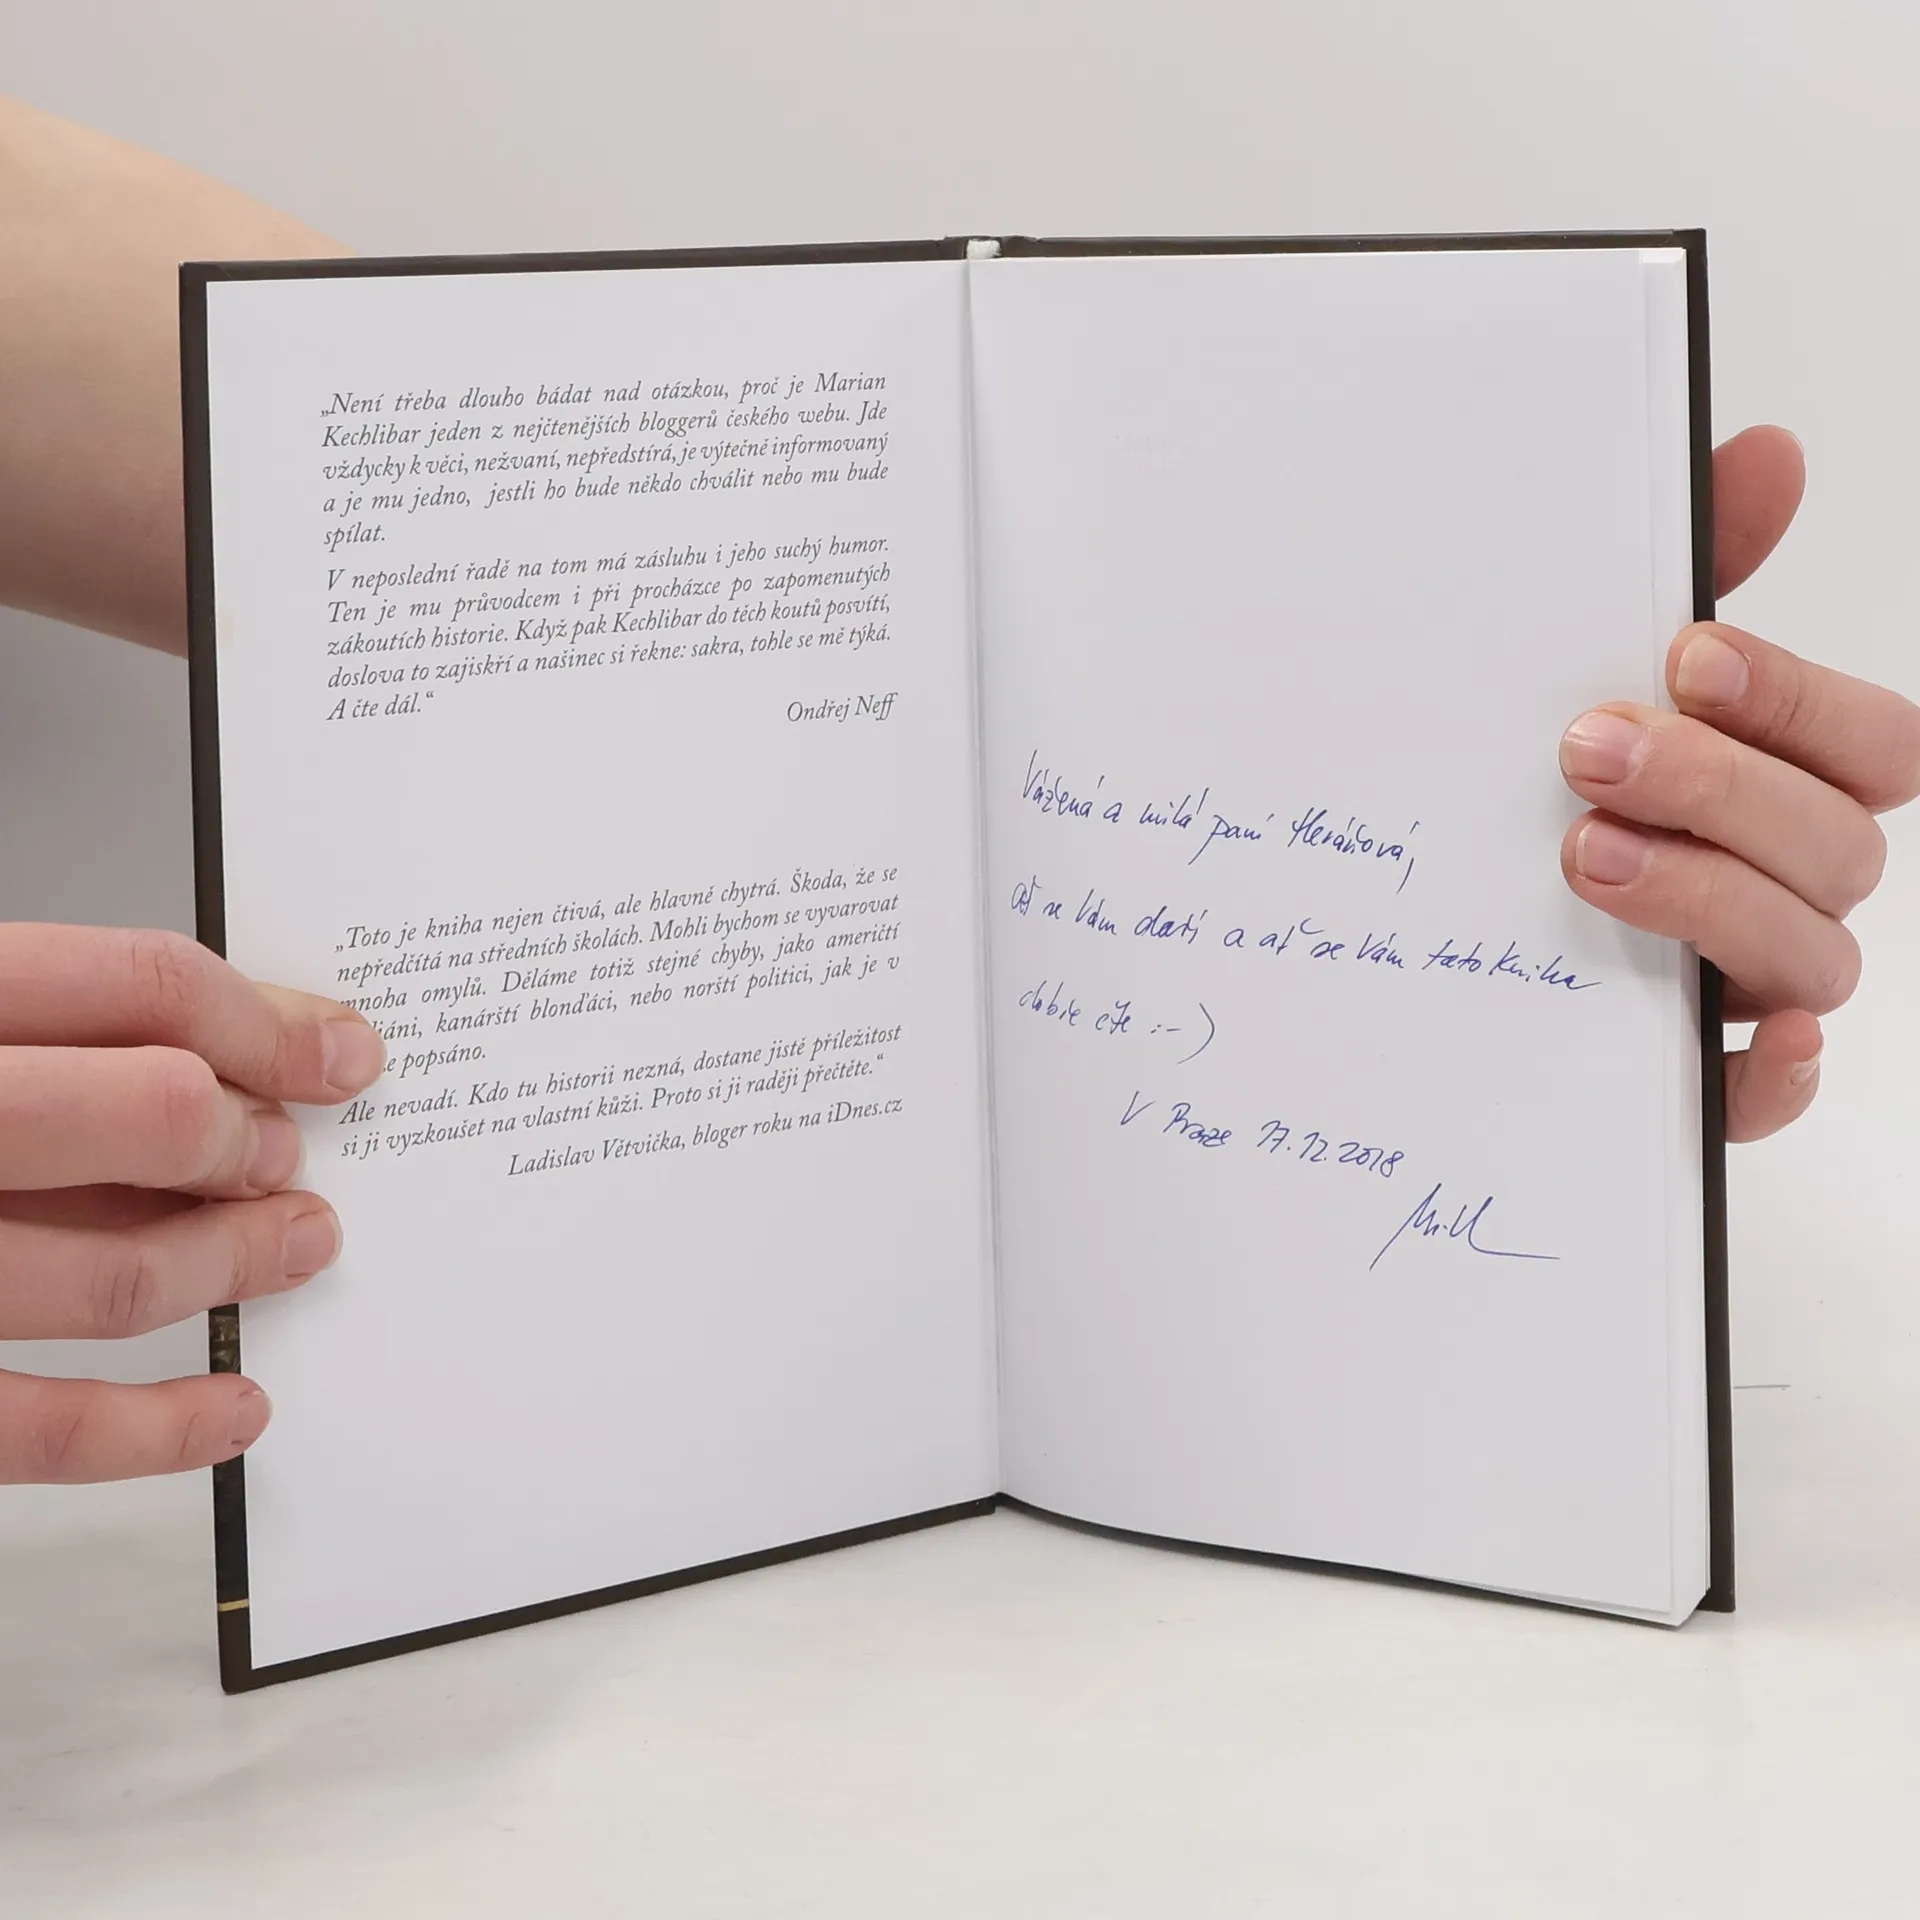 „Není třeba dlouho bádat nad otázkou, proč je Marian
Kechlibar jeden z nejčtenějších bloggerů českého webu. Jde
vždycky k věci, nežvaní, nepředstírá, je výtečně informovaný
a je mu jedno, jestli ho bude někdo chválit nebo mu bude
spílat.
V neposlední řadě na tom má zásluhu i jeho suchý humor.
Ten je mu průvodcem i při procházce po zapomenutých
zákoutích historie. Když pak Kechlibar do těch koutů posvítí,
doslova to zajiskří a našinec si řekne: sakra, tohle se mě týká.
A čte dál.“
Ondřej Neff
„Toto je kniha nejen čtivá, ale hlavně chytrá. Škoda, že se
nepředčítá na středních školách. Mohli bychom se vyvarovat
mnoha omylů. Děláme totiž stejné chyby, jako američtí
kanárští blonďáci, nebo norští politici, jak je v
popsáno.
Ale nevadí. Kdo tu historii nezná, dostane jistě příležitost
si ji vyzkoušet na vlastní kůži. Proto si ji raději přečtěte.“
Ladislav Větvička, bloger roku na iDnes.cz
Vážená a milá paní
ať se Vám daří a ať se Vám tato kniha
dobře čte :-)
V Praze 17.12.2018